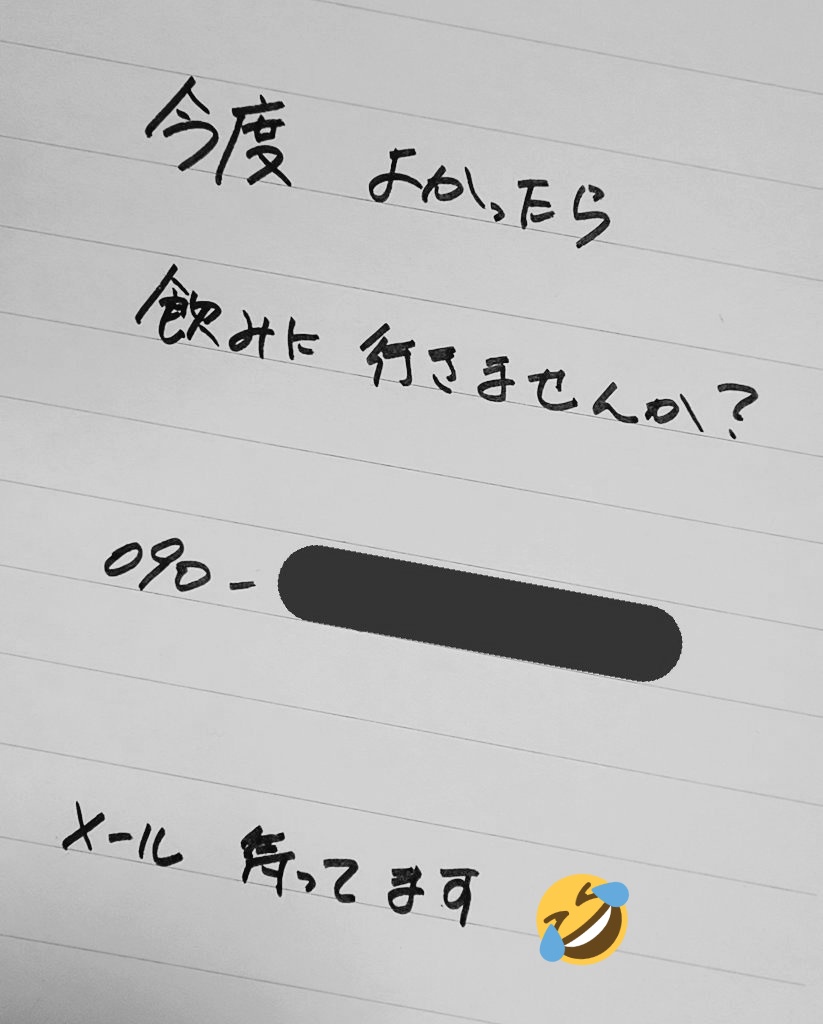 今度 よかったら
飲みに 行きませんか?
090-
メール 待ってます 🤣